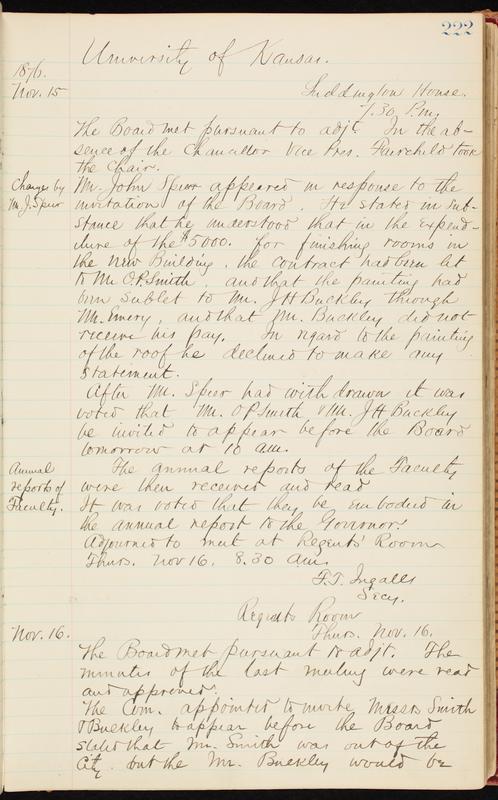 222
University of Kansas.
1876.
Nov. 15
Luddington House.
7.30 P.m.
The Board met pursuant to adjt. In the ab-
sence of the Chancellor Vice Pres. Fairchild took
the Chair.
Charges by
Mr. J. Speer
Mr. John Speer appeared in response to the
invitations of the Board. He stated in sub-
stance that he understood that in the expend-
iture of the $5000. for finishing rooms in
the new Building, the contract had been let
to Mr. O.P. Smith, and that the painting had
been sublet to Mr. J H Buckley through
Mr. Emery, and that Mr. Buckley did not
receive his pay. In regard to the painting
of the roof he declined to make any
statement.
After Mr. Speer had withdrawn it was
voted that Mr. O P Smith & Mr. J H Buckley
be invited to appear before the Board
tomorrow at 10 am.
Annual
reports of
Faculty.
The annual reports of the Faculty
were then received and read
It was voted that they be embodied in
the annual report to the Governor.
Adjourned to meet at Regents' Room
Thurs. Nov 16. 8.30 am.
F.T. Ingalls
Secy.
Regents Room
Nov. 16.
Thurs. Nov. 16.
The Board met pursuant to adjt. The
minutes of the last meeting were read
and approved.
The Com. appointed to invite Messrs Smith
& Buckley to appear before the Board
stated that Mr. Smith was out of the
City but the Mr. Buckley would be